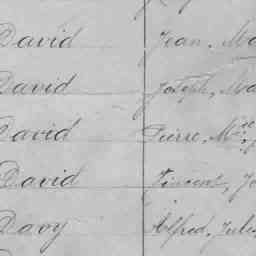 David Jean, Ma
David Joseph, Ma
David Pierre, M
David Vincent, Jo
Davy Alfred, Jules